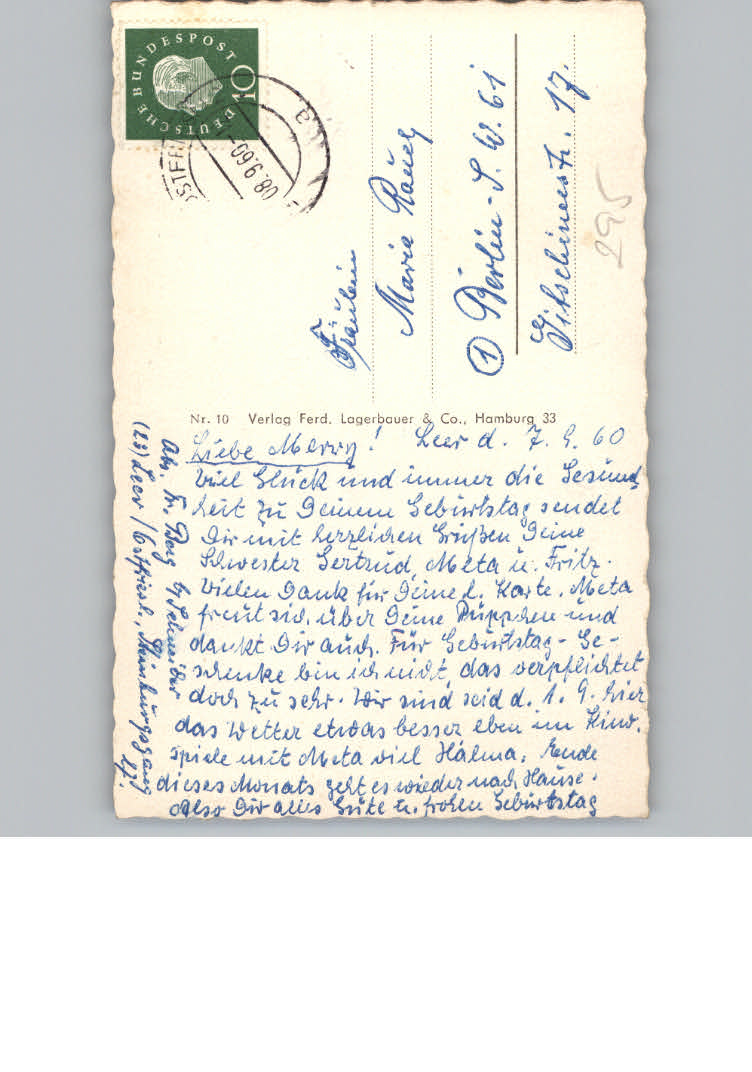 DEUTSCHE BUNDESPOST
10
08.9.60
a
Fräulein
Maria
① Berlin - S.W. 61
17.
295
Nr. 10 Verlag Ferd. Lagerbauer & Co., Hamburg 33
Leer d. 7.9.60
Liebe !
Viel Glück und immer die Gesund
heit zu Deinem Geburtstag sendet
Dir mit herzlichen Grüßen Deine
Schwester Gertrud, Meta u. Fritz.
Vielen Dank für Deine l. Karte. Meta
freut sich über Deine Püppchen und
dankt Dir auch. Für Geburtstag-Ge-
schenke bin ich nicht, das verpflichtet
doch zu sehr. Wir sind seid d. 1.9. hier
das Wetter etwas besser eben im Kino.
spiele mit Meta viel Halma. Ende
dieses Monats geht es wieder nach Hause.
Also Dir alles Gute u. frohen Geburtstag
Abs. Fr. Berg b/Schneider
(23) Leer / Ostfriesl.,
17.